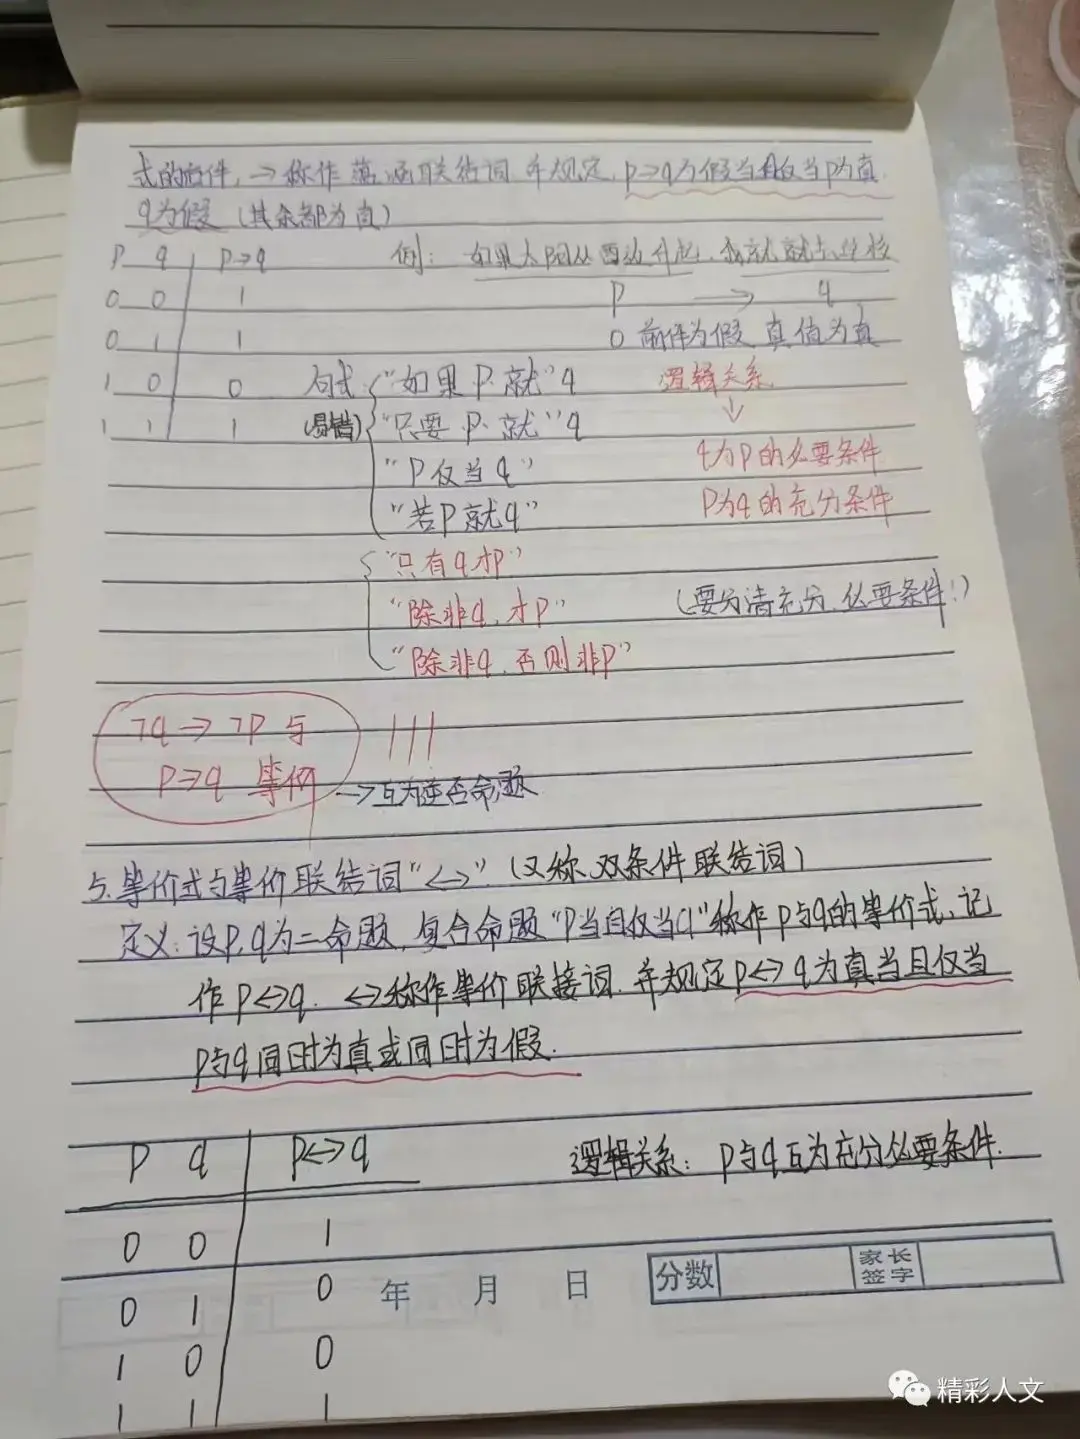 式的后件，→称作蕴涵联结词，并规定，p→q为假当且仅当p为真
q为假（其余都为真）
p q p→q 例：如果太阳从西边升起，我就就去学校
0 0 1 p → q
0 1 1 0 前件为假 真值为真
1 0 0 句式 "如果p.就"q 逻辑关系
1 1 1 (易错) "只要p.就"q ↓
"p仅当q" q为p的必要条件
"若p就q" p为q的充分条件
"只有q才p"
"除非q.才p" (要分清充分.必要条件!)
"除非q.否则非p"
¬q→¬p与
p→q 等价 →互为逆否命题
5.等价式与等价联结词"↔"(又称双条件联结词)
定义:设p,q为二命题,复合命题"p当且仅当q"称作p与q的等价式,记
作p↔q. ↔称作等价联接词.并规定p↔q为真当且仅当
p与q同时为真或同时为假.
p q p↔q 逻辑关系：p与q互为充分必要条件.
0 0 1
0 1 0
1 0 0
1 1 1
年 月 日 分数 家长签字
精彩人文